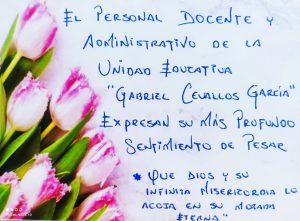 El Personal Docente y
Administrativo de la
Unidad Educativa
"Gabriel Cevallos García"
Expresan su más profundo
sentimiento de pesar
* Que Dios y su
infinita misericordia lo
acoja en su morada
eterna"